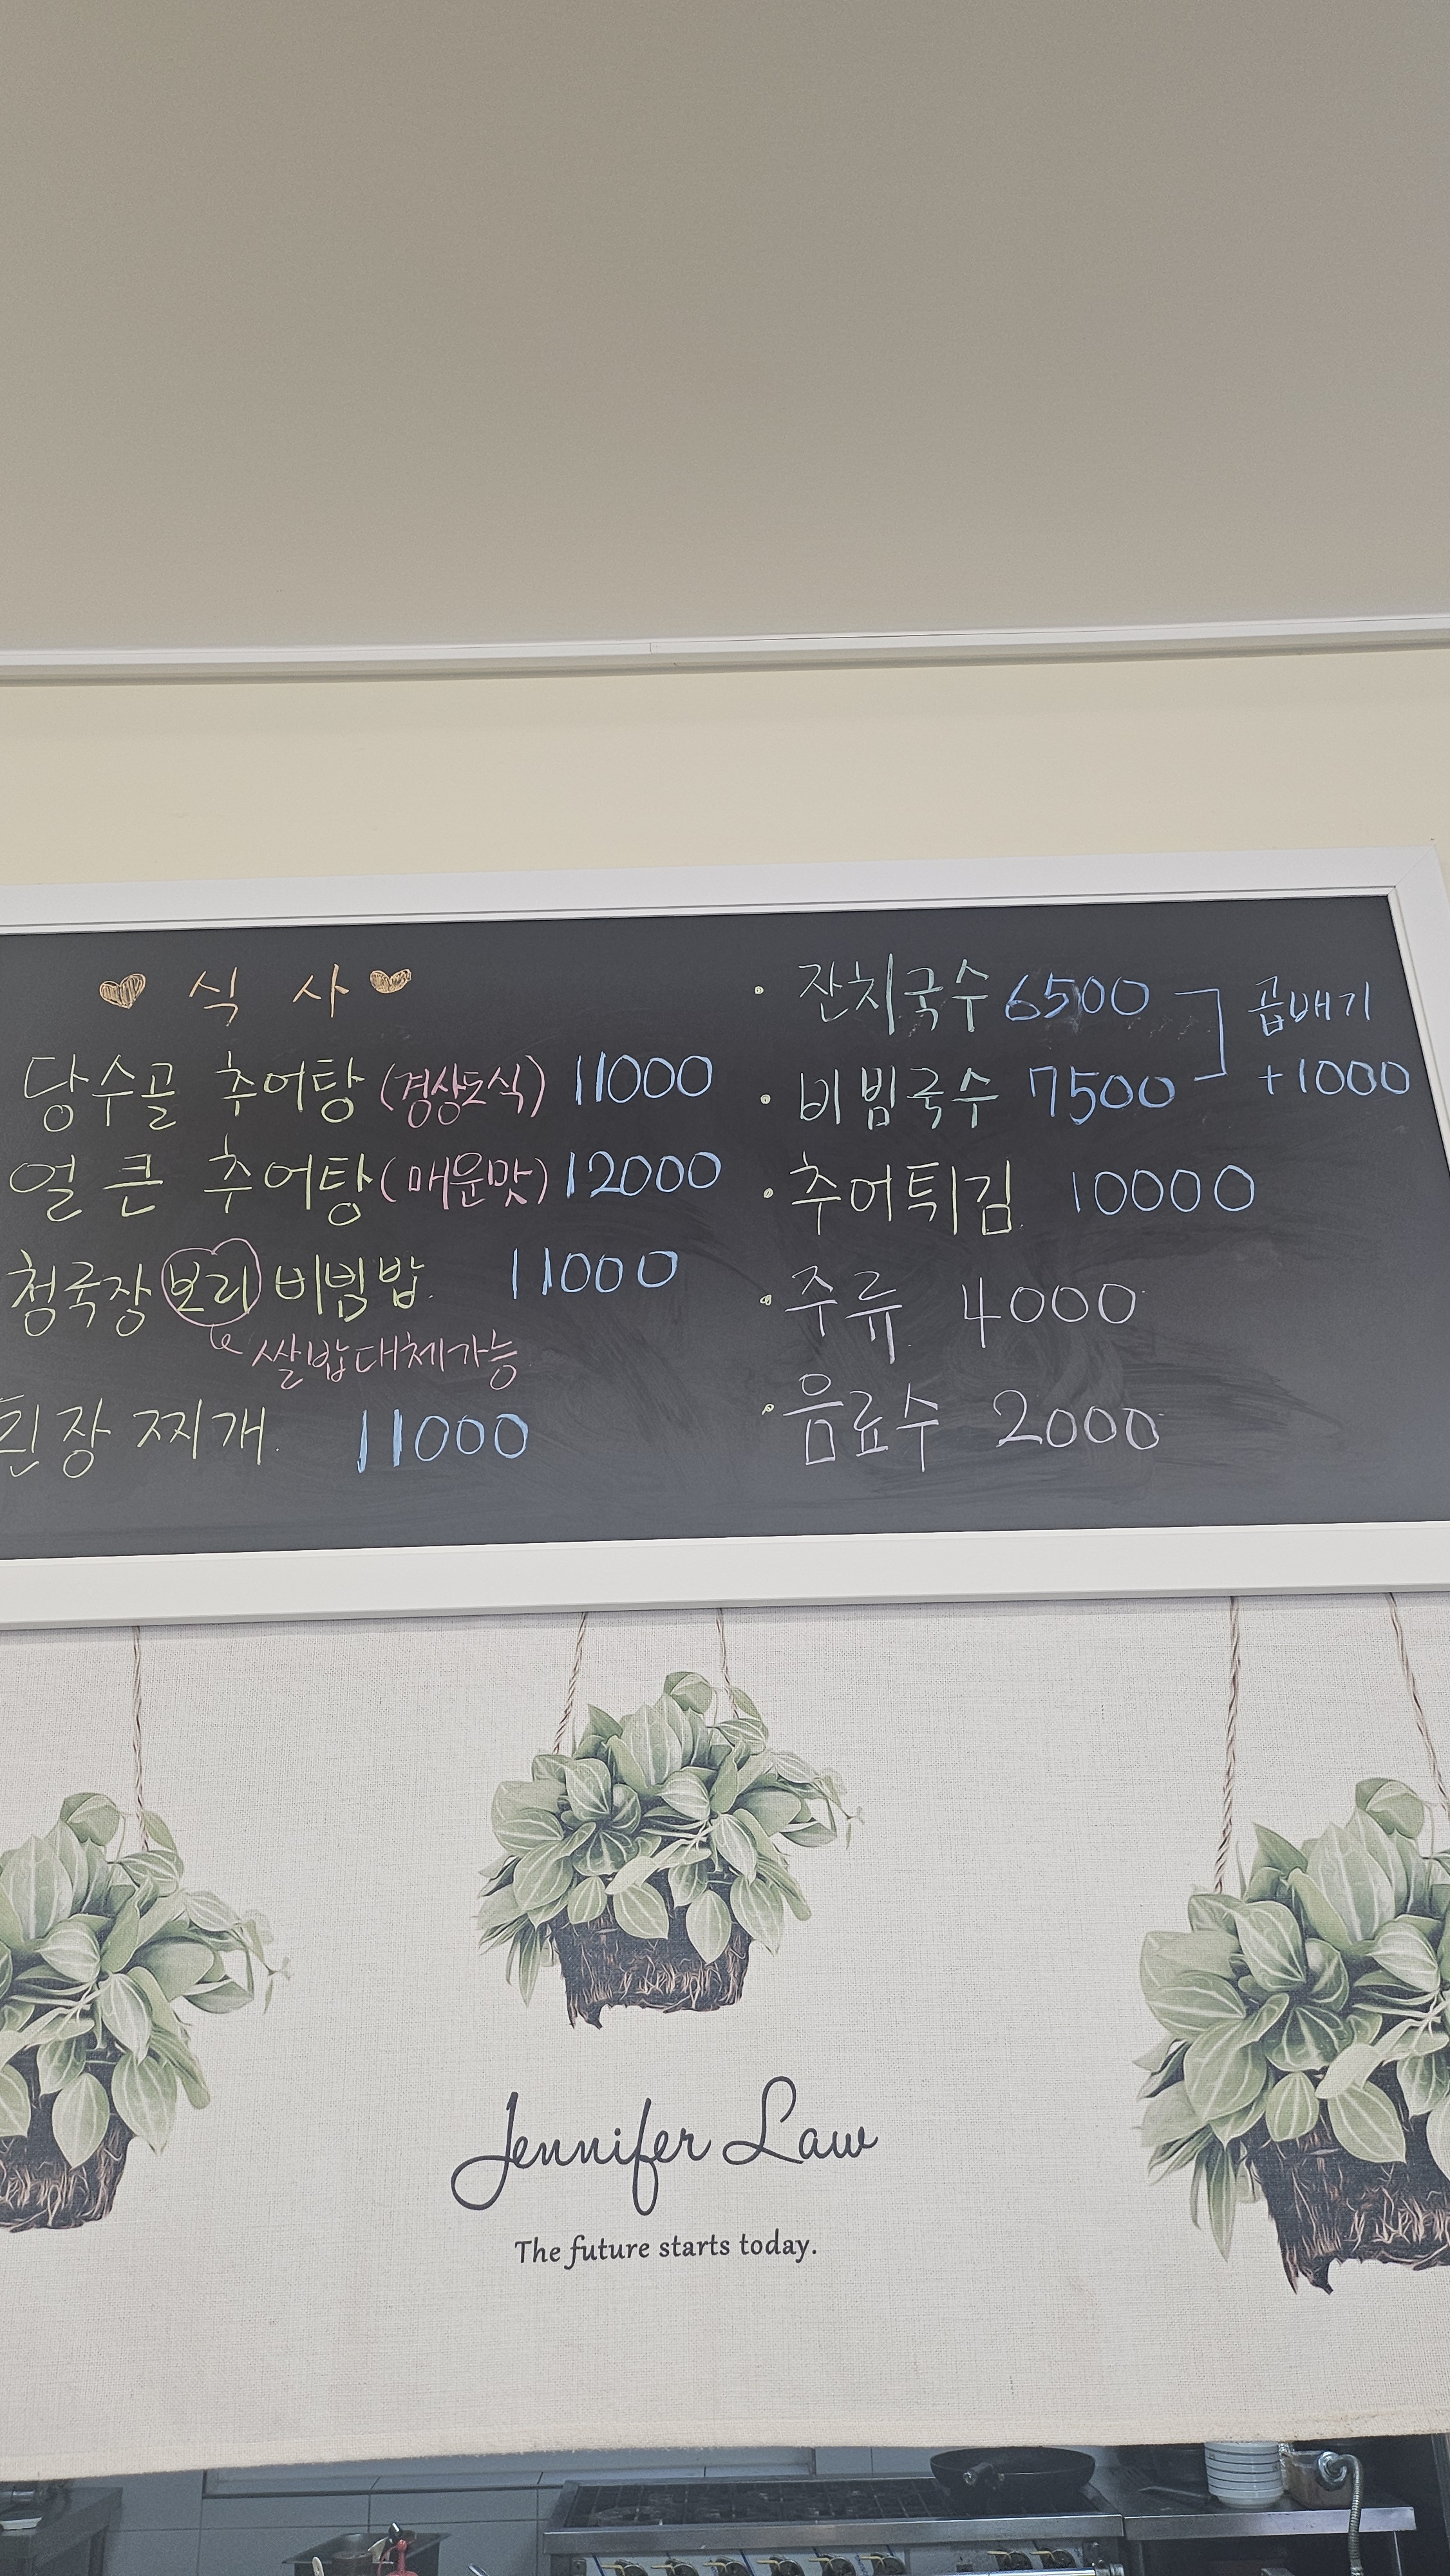 식 사
당수골 추어탕 (경상도식) 11000
얼큰 추어탕 (매운맛) 12000
청국장 보리 비빔밥 11000
쌀밥대체가능
된장찌개 11000
· 잔치국수 6500
· 비빔국수 7500
곱배기
+1000
· 추어튀김 10000
· 주류 4000
· 음료수 2000
Jennifer Law
The future starts today.